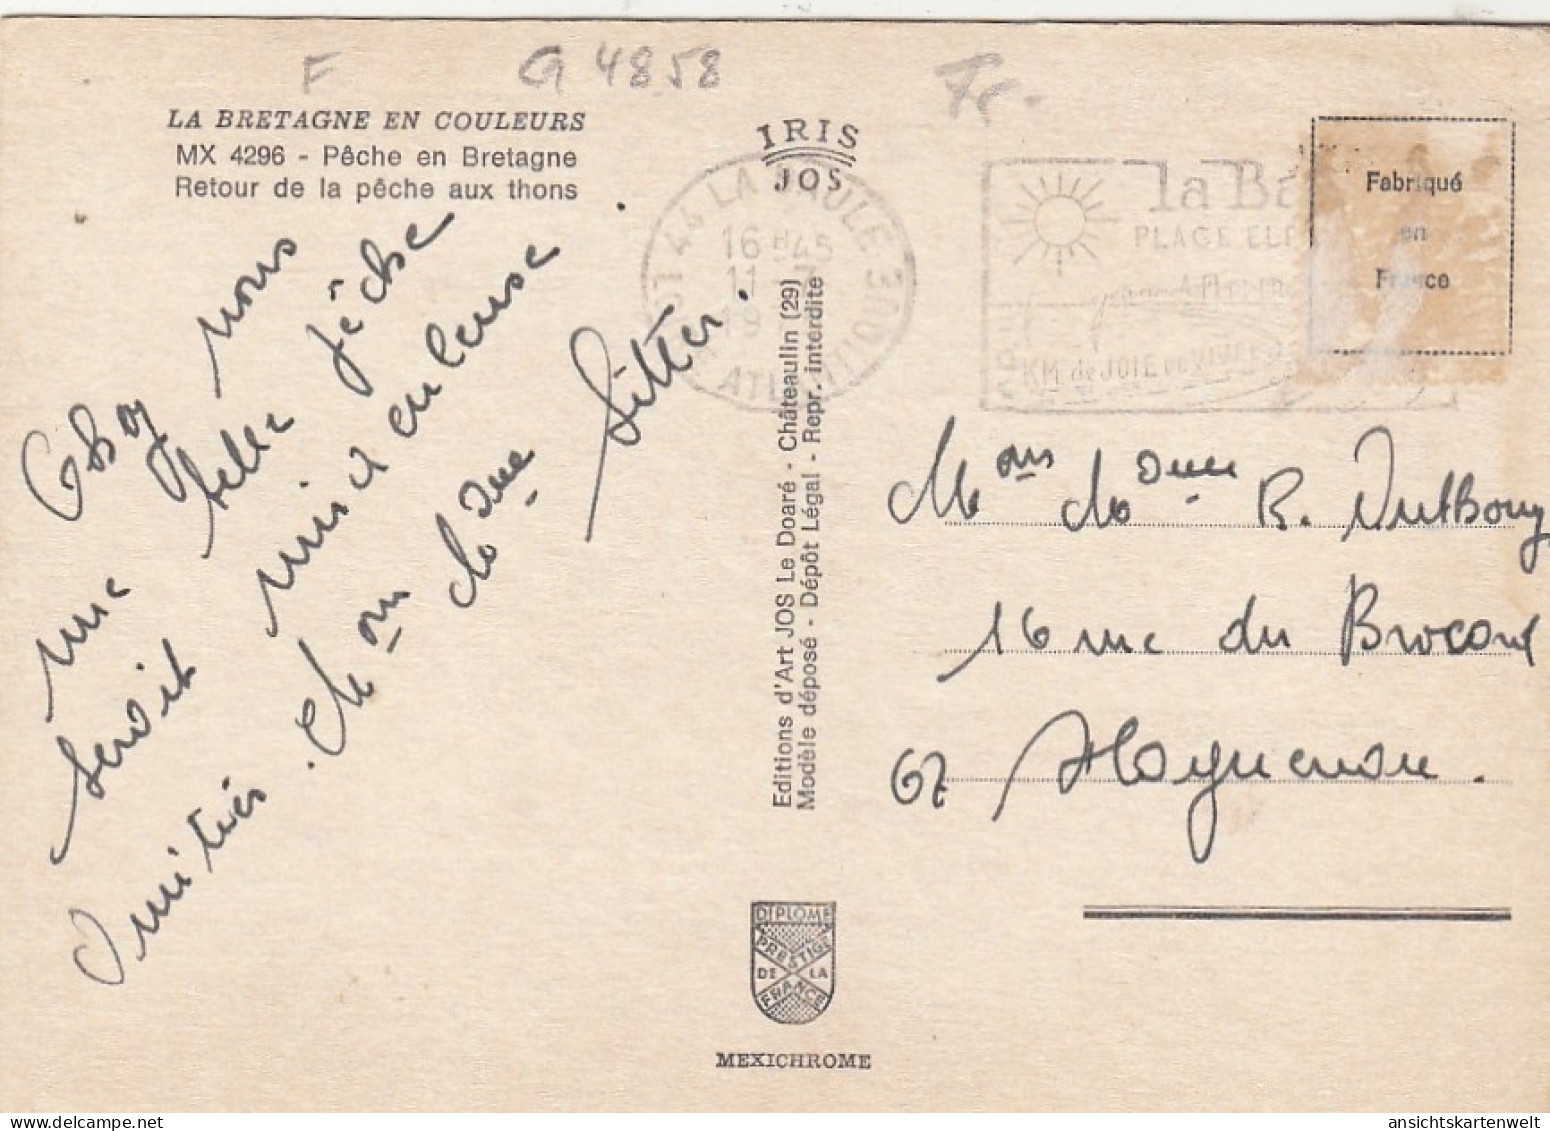 F
G 4858
Fr.
LA BRETAGNE EN COULEURS
MX 4296 - Pêche en Bretagne
Retour de la pêche aux thons
IRIS
JOS
44 LA BAULE
16 H45
11
19
ATLANTIQUE
la Ba
PLAGE
KM de JOIE de VIVRE
Fabriqué
en
France
Chez nous
une belle pêche
serait miraculeuse.
Amitiés. Mons Mdme Sitter.
Editions d'Art JOS Le Doaré - Châteaulin (29)
Modèle déposé - Dépôt Légal - Repr. interdite
Mons Mdame R.
16 rue du
67 Haguenau.
DIPLOME
PRESTIGE
DE LA
FRANCE
MEXICHROME
ansichtskartenwelt